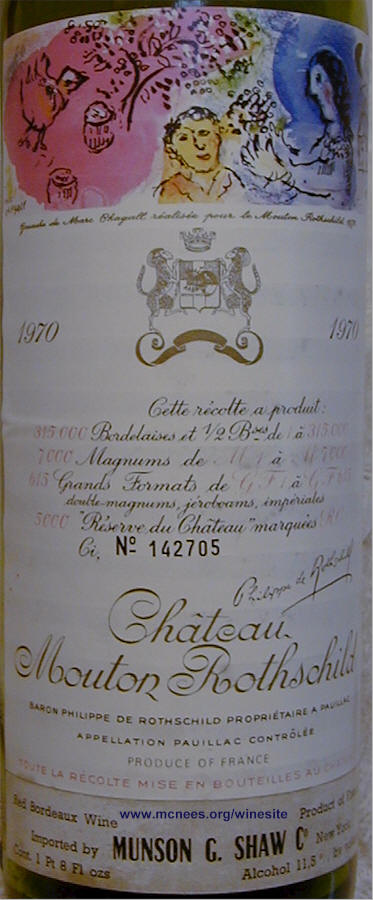 Gouache de Marc Chagall réalisée pour le Mouton Rothschild 1970
1970 1970
Cette récolte a produit:
315 000 Bordelaises et 1/2 Bses de 1 à 315 000
7 000 Magnums de M 1 à M 7 000
615 Grands Formats de G F 1 à G F 615
double-magnums, jéroboams, impériales
5000 "Réserve du Château" marquées R C
Ci, Nº 142705
Philippe de Rothschild
Château
Mouton Rothschild
BARON PHILIPPE DE ROTHSCHILD PROPRIÉTAIRE A PAUILLAC
APPELLATION PAUILLAC CONTRÔLÉE
PRODUCE OF FRANCE
TOUTE LA RÉCOLTE MISE EN BOUTEILLES AU
Red Bordeaux Wine www.mcnees.org/winesite Product of
Imported by MUNSON G. SHAW Co New York
Cont. 1 Pt 8 Fl ozs Alcohol 11,5° by